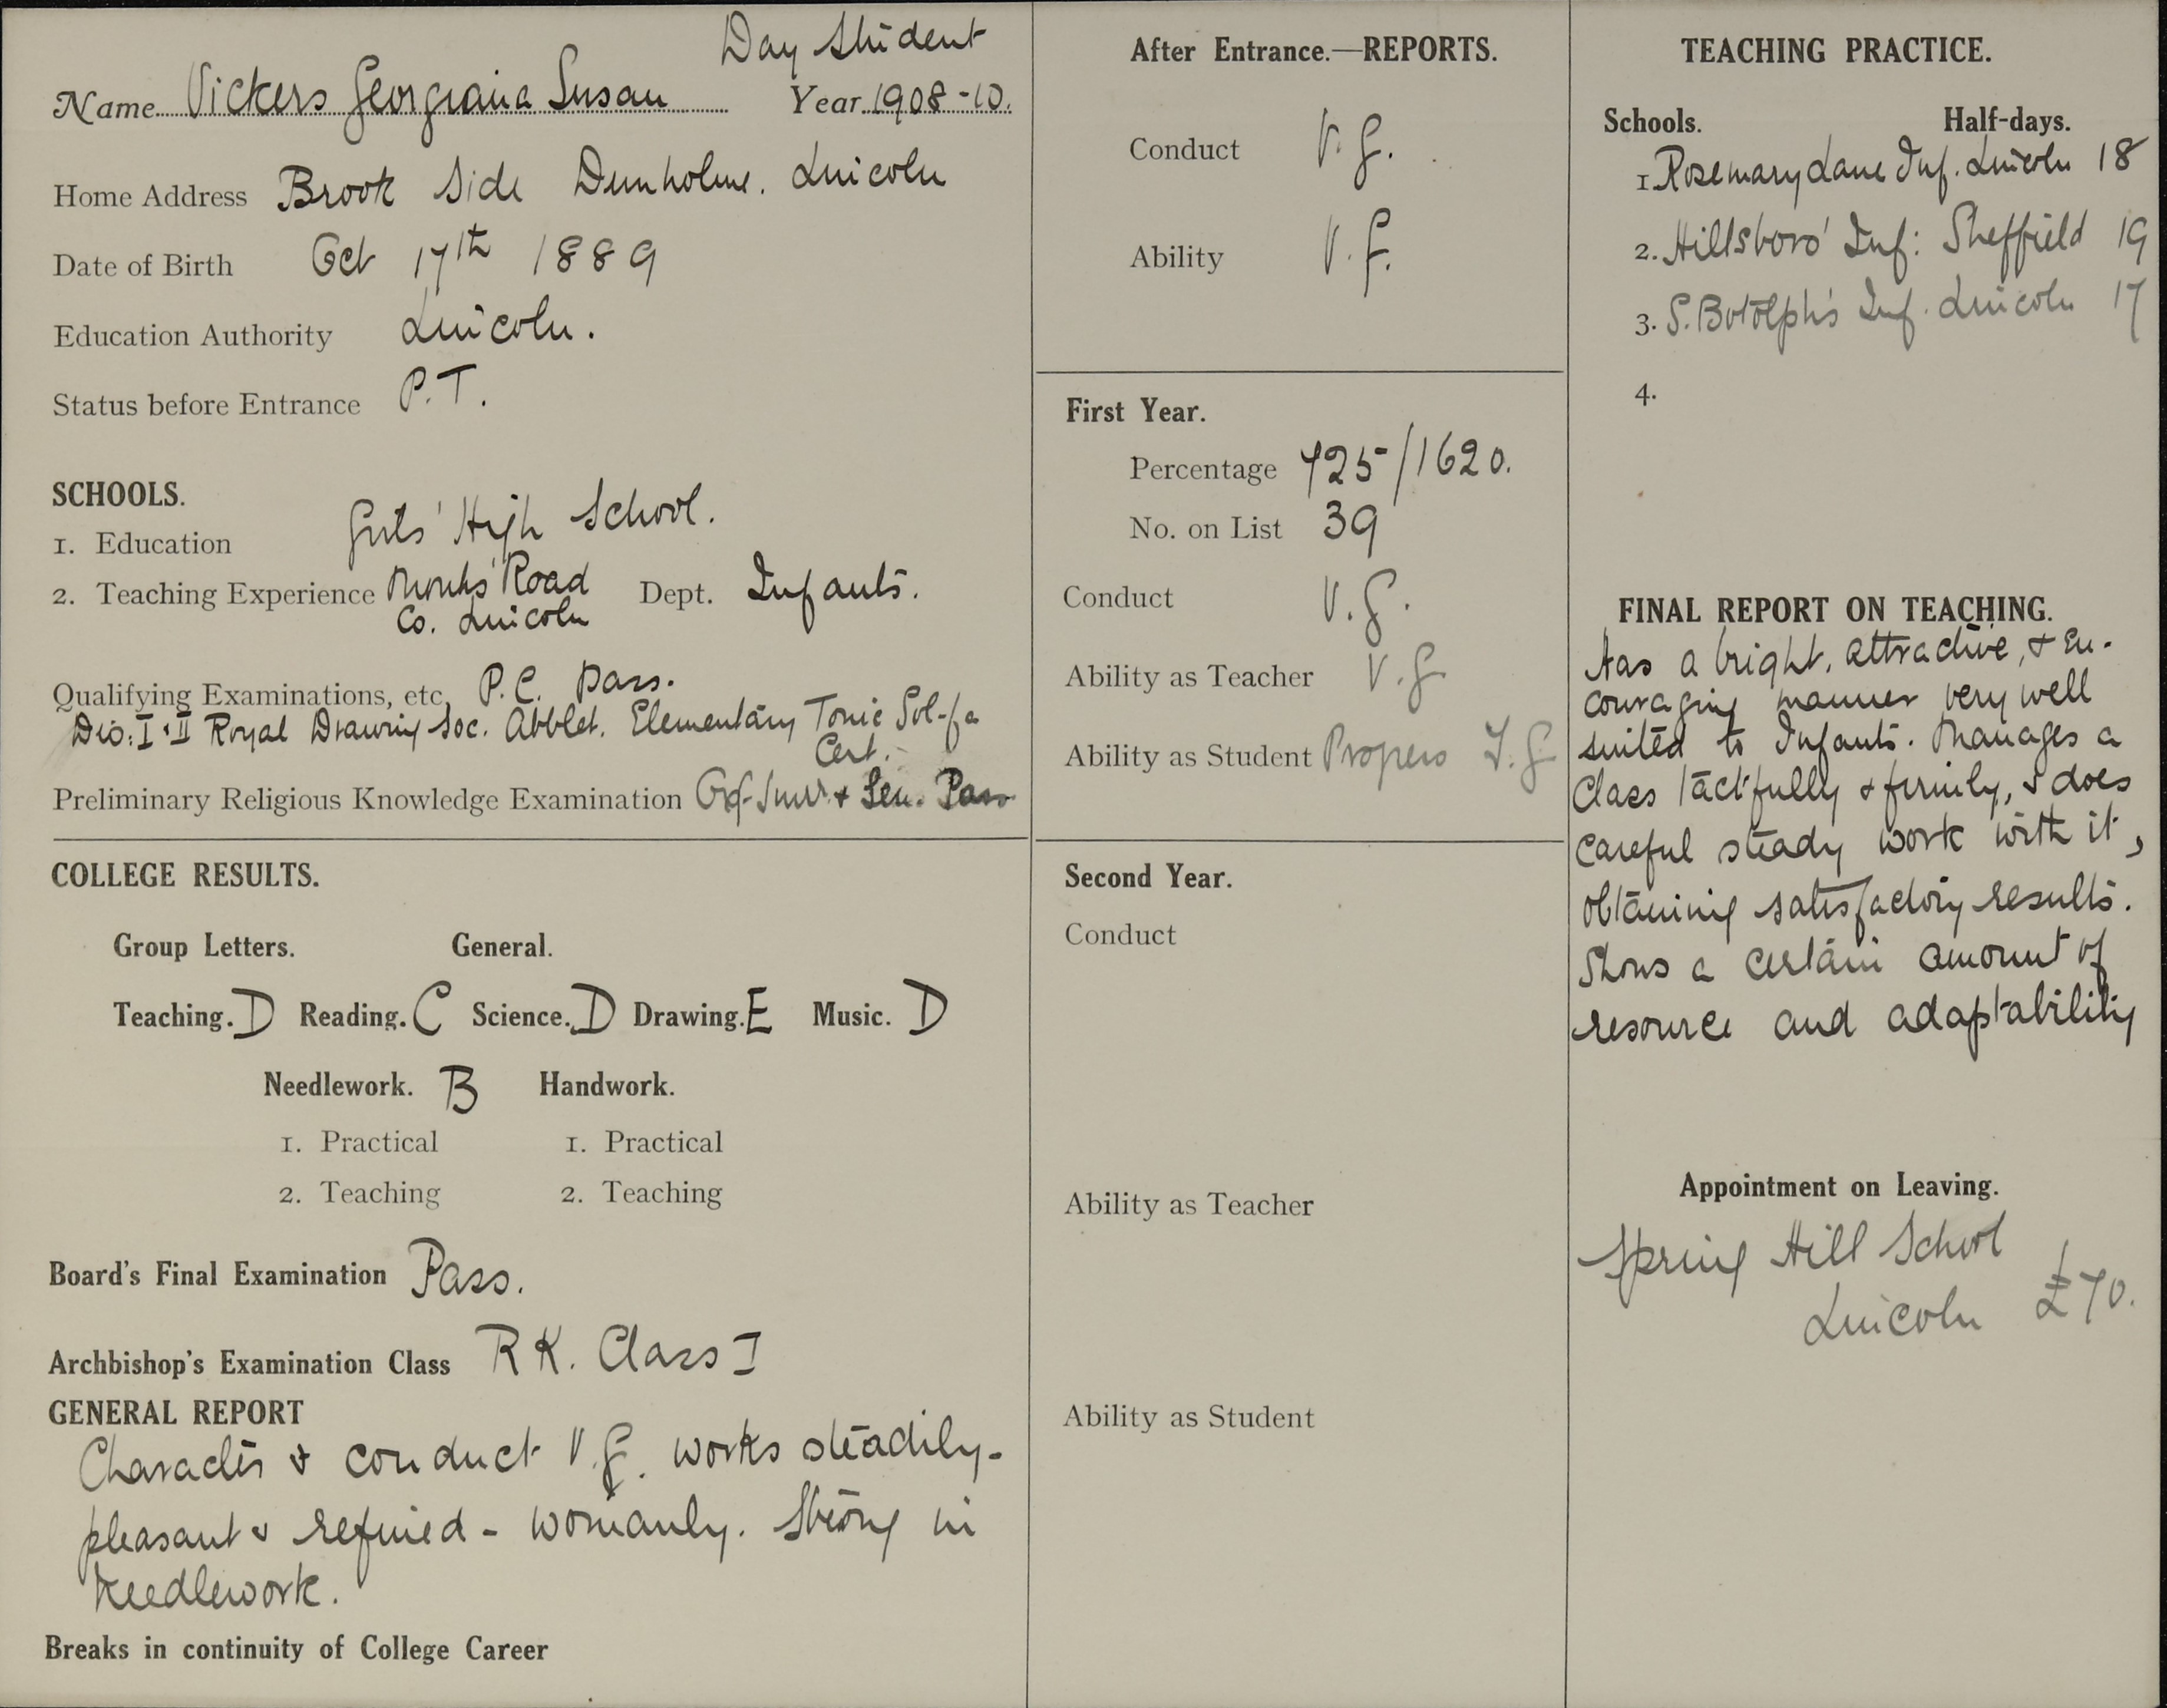 Day Student
Name Vickers Georgiana Susan Year 1908-10.
Home Address Brook Side Dunholme. Lincoln
Date of Birth Oct 17th 1889
Education Authority Lincoln.
Status before Entrance P.T.
SCHOOLS.
1. Education Girls' High School.
2. Teaching Experience Monks' Road Dept. Infants.
Co. Lincoln
Qualifying Examinations, etc. P.C. pass.
Div: I & II Royal Drawing Soc. Abblet. Elementary Tonic Sol-fa
Cert.
Preliminary Religious Knowledge Examination & Sen. Pass
COLLEGE RESULTS.
Group Letters. General.
Teaching. D Reading. C Science. D Drawing. E Music. D
Needlework. B Handwork.
1. Practical 1. Practical
2. Teaching 2. Teaching
Board's Final Examination Pass.
Archbishop's Examination Class R K. Class I
GENERAL REPORT
Character & conduct V.G. works steadily-
pleasant & refined - womanly. Strong in
Needlework.
Breaks in continuity of College Career
After Entrance.—REPORTS.
Conduct V.G.
Ability V.F.
First Year.
Percentage 725/1620.
No. on List 39
Conduct V.G.
Ability as Teacher V.G
Ability as Student F.G
Second Year.
Conduct
Ability as Teacher
Ability as Student
TEACHING PRACTICE.
Schools. Half-days.
1. Rosemary Lane Inf. Lincoln 18
2. Hillsboro' Inf: Sheffield 19
3. S. Botolph's Inf. Lincoln 17
4.
FINAL REPORT ON TEACHING.
Has a bright, attractive, & en-
couraging manner very well
suited to Infants. Manages a
Class tactfully & firmly, & does
careful steady work with it,
obtaining satisfactory results.
Shows a certain amount of
resource and adaptability
Appointment on Leaving.
Spring Hill School
Lincoln £70.